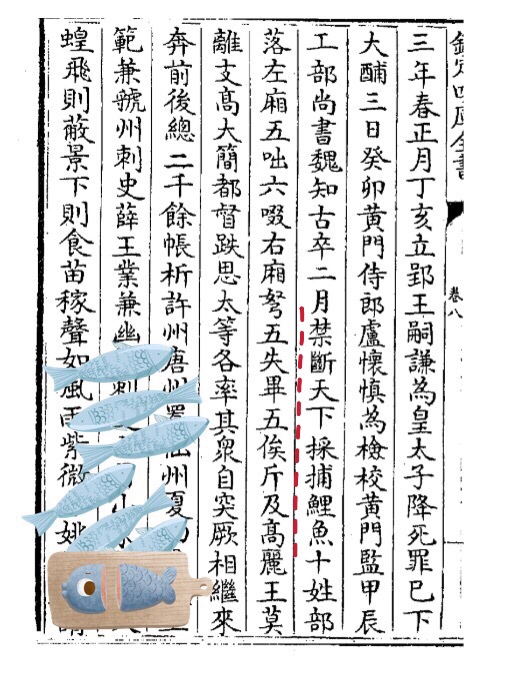 欽定四庫全書
卷八
三年春正月丁亥立郢王嗣謙為皇太子降死罪已下
大酺三日癸卯黃門侍郎盧懷慎為檢校黃門監甲辰
工部尚書魏知古卒二月禁斷天下採捕鯉魚十姓部
落左廂五咄六啜右廂弩五失畢五俟斤及高麗王莫
離支高大簡都督跌思太等各率其衆自突厥相繼來
奔前後總二千餘帳析許州唐州置仙州夏
範兼虢州刺史薛王業兼幽州刺
蝗飛則蔽景下則食苗稼聲如風雨紫微姚